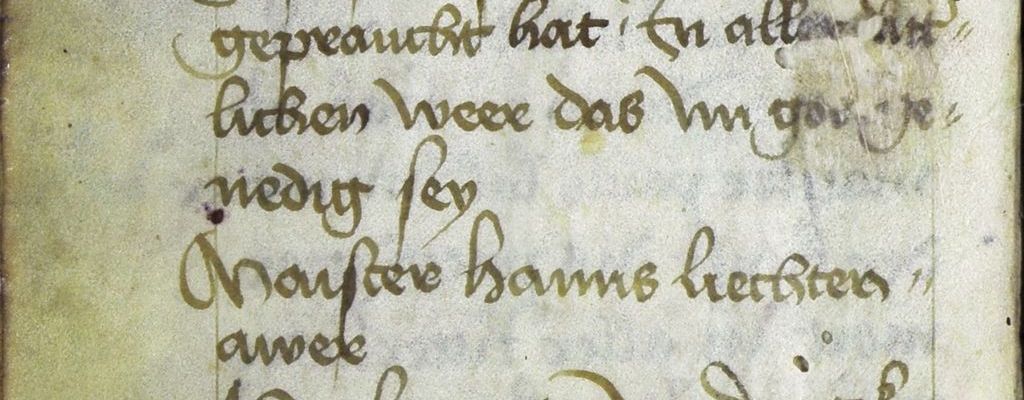 gepraucht hat In aller Ritt〃
lichen weer das Im got ge〃
nedig sey
Maister hanns liechten〃
awer